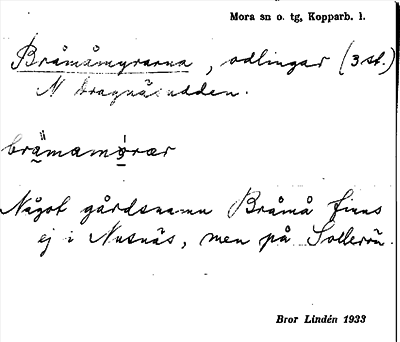 Mora sn o. tg, Kopparb. l.
Bråmåmyrarna, odlingar (3 st.)
N
Något gårdsnamn Bråmå finns
ej i Nusnäs, men på Sollerön.
Bror Lindén 1933